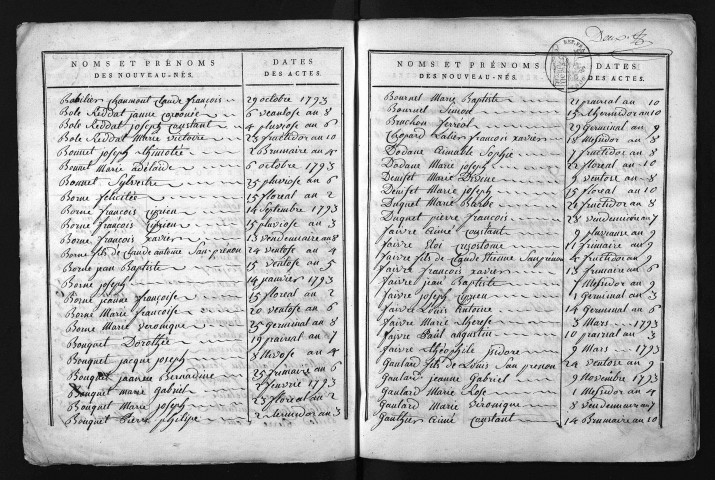 NOMS ET PRÉNOMS
DES NOUVEAU-NÉS.
DATES
DES ACTES.
Bobilier Chaumont Claude françois 29 octobre 1793
Bole Reddat jeanne 6 ventose an 8
Bole Reddat joseph Constant 4 pluviose an 6
Bole Reddat Marie victoire 23 fructidor an 10
Bonnet joseph thimotée 2 Brumaire an 4
Bonnet Marie adelaide 6 octobre 1793
Bonnet Sylvestre 25 pluviose an 6
Borne felicitée 15 floreal an 2
Borne françois Cyprien 14 Septembre 1793
Borne françois Cyprien 15 pluviose an 3
Borne françois xavier 13 vendemiaire an 8
Borne fils de Claude antoine Sans prenon 24 ventose an 4
Borde jean Baptiste 15 ventose an 5
Borne joseph 14 janvier 1793
Borne jeanne françoise 15 floreal an 2
Borne Marie francoise 20 ventose an 6
Borne Marie veronique 25 Germinal an 8
Bouquet Dorothée 19 prairial an 7
Bouquet jacque joseph 8 Nivose an 4
Bouquet jeanne Bernardine 25 frimaire an 6
Bouquet marie Gabriel 7 fevrie 1793
Bouquet Marie joseph 23 floreal an 2
Bouquet Pierre philipe 2 Messidor an 3
NOMS ET PRÉNOMS
DES NOUVEAU-NÉS.
DATES
DES ACTES.
Bournet Marie Baptiste 21 prairial an 10
Bournet Simon 13 thermidor an 10
Bruchon ferreol 29 Germinal an 9
Chopard Lalier francois xavier 18 Messidor an 8
Dodane aimable Sophie 7 fructidor an 8
Dodane Marie joseph 22 floreal an 10
Deniset Marie 9 ventose an 8
Deniset Marie joseph 15 floreal an 10
Duguet Marie Barbe 26 fructidor an 8
Duguet pierre françois 28 vendemiaire an 7
faivre aimé Constant 9 pluviause an 9
faivre Eloi Crisostome 11 frimaire an 9
faivre fils de Claude Etienne Sans prenon 4 fructidor an 9
faivre francois xavier 13 frimaire an 6
faivre jean Baptiste 7 Messidor an 9
faivre joseph Cyprien 1 Germinal an 3
faivre Louis antoine 14 Germinal an 6
faivre Marie therese 3 Mars 1793
faivre Paul augustin 10 prairial an 3
faivre théophile isidore 9 Mars 1793
Gaulard fils de Louis San prenon 24 ventose an 9
Gaulard jeanne Gabriel 9 Novembre 1793
Gaulard Marie Rose 1 Messidor an 4
Gaulard Marie veronique 8 vendemiaire an 7
Gauthier aimé Constant 14 Brumaire an 10